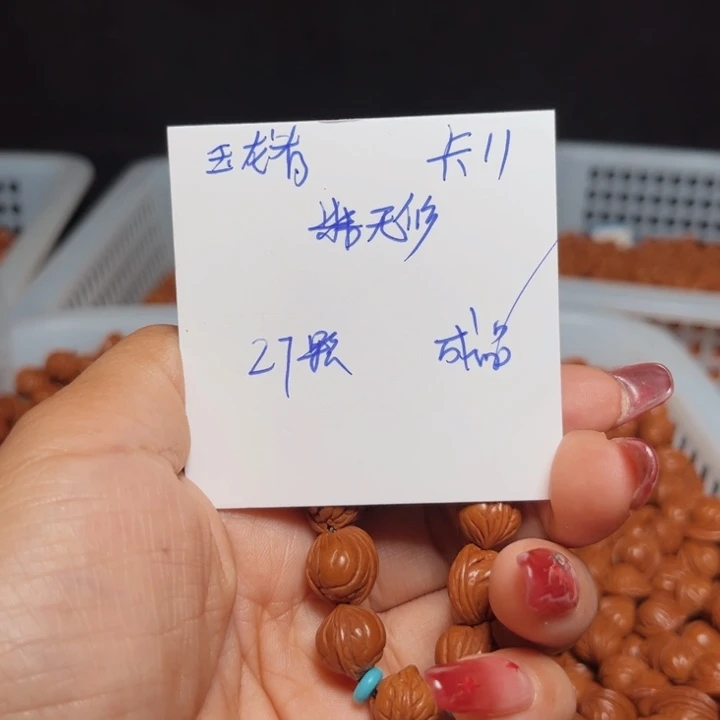 玉龙肴 卡11
精无修
27颗 成品